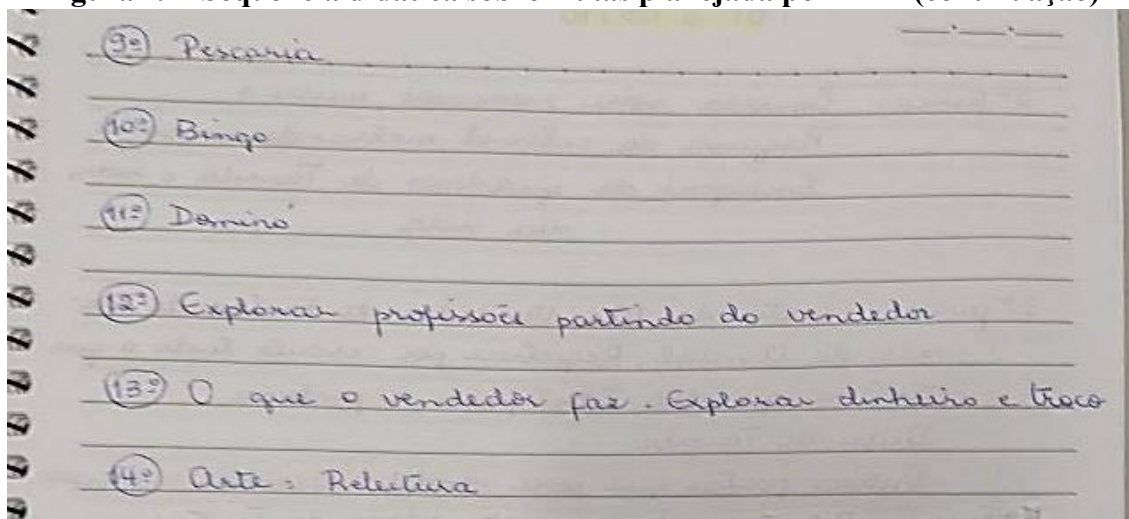 9º Pescaria
10º Bingo
11º Dominó
12º Explorar profissões partindo do vendedor
13º O que o vendedor faz. Explorar dinheiro e troco
14º Arte: Releitura